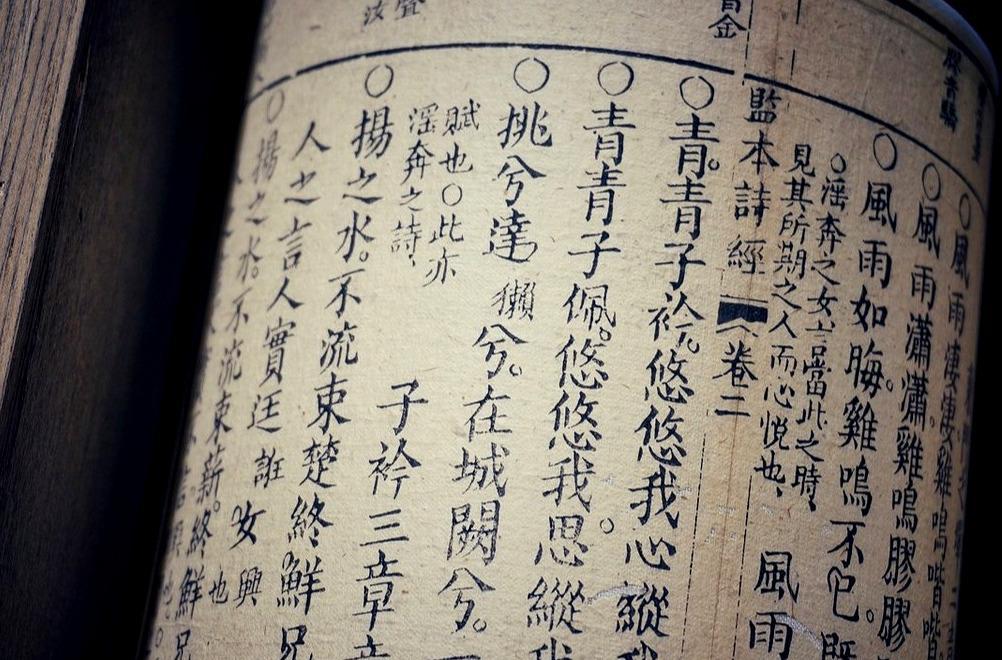 ○風雨淒淒雞鳴喈喈。
○風雨瀟瀟。雞鳴膠膠
○風雨如晦。雞鳴不已。既
○淫奔之女言當此之時、
見其所期之人而心悅也、 風雨
監本詩經 卷二
○青青子衿。悠悠我心縱我
○青青子佩。悠悠我思。縱我
○挑兮達獺兮。在城闕兮。
賦也○此亦
淫奔之詩、 子衿三章
○揚之水。不流束楚終鮮兄
人之言人實迋誑女興也
○揚之水。不流束薪。終鮮兄